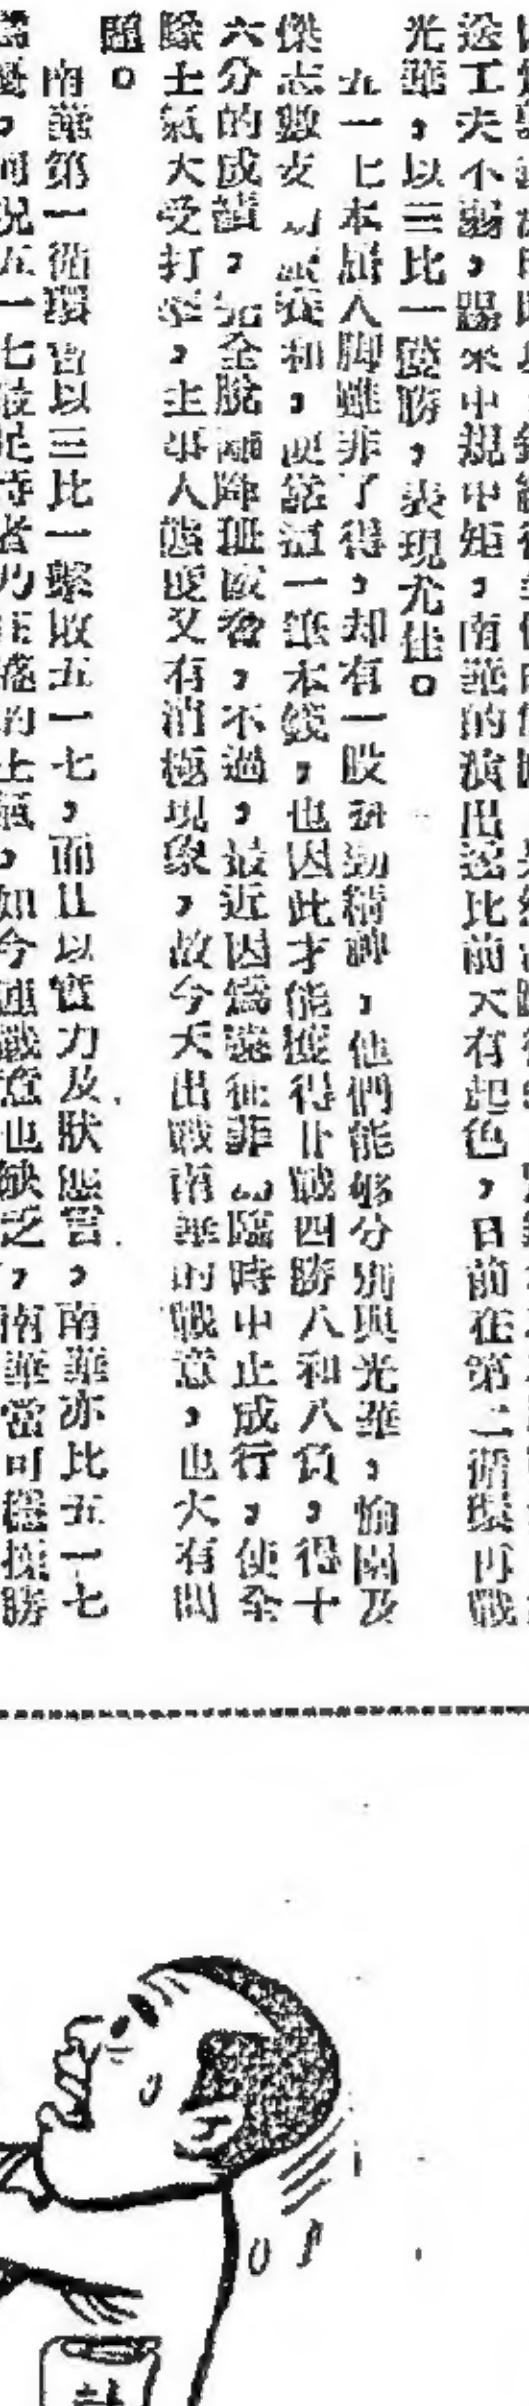 送工夫不弱，踢來中規中矩，南華的演出逐比前大有起色，日前在第二循環再戰
光華，以三比一獲勝，表現尤佳。
五一七本屆人脚雖非了得，却有一股 勁精神，他們能够分別與光華，愉園及
傑志數支 和，便 一 本錢，也因此才能獲得廿戰四勝八和八負，得十
六分的成績，完全脫離降班威脅，不過，最近因為遠征菲 臨時中止成行，使全
隊士氣大受打擊，主事人態度又有消極現象，故今天出戰南華的戰意，也大有問
題。
南華第一循環曾以三比一擊敗五一七，而且以實力及狀態言，南華亦比五一七
為優，何況五一七 足恃者乃旺盛的士氣，如今連戰意也缺乏，南華當可穩操勝